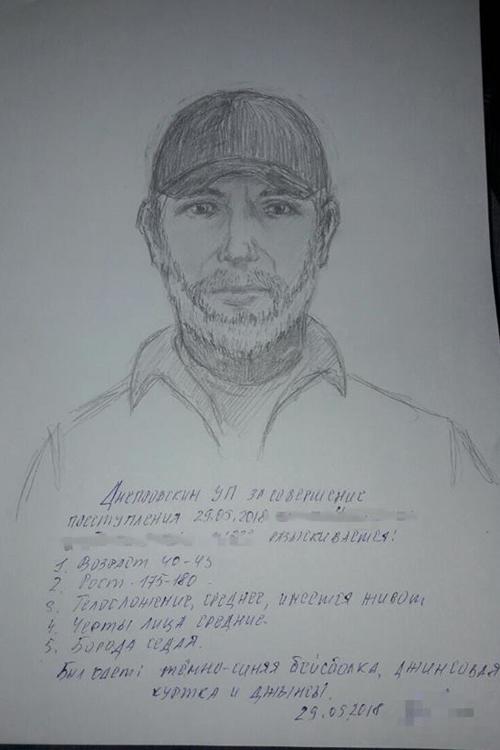 Днепровским УП за совершение
преступления 29.05.2018
разыскивается!
1. Возраст 40-45
2. Рост - 175-180.
3. Телосложение, среднее, имеется живот,
4. Черты лица средние.
5. Борода седая.
Был одет: тёмно-синяя бейсболка, джинсовая
куртка и джынсы.
29.05.2018